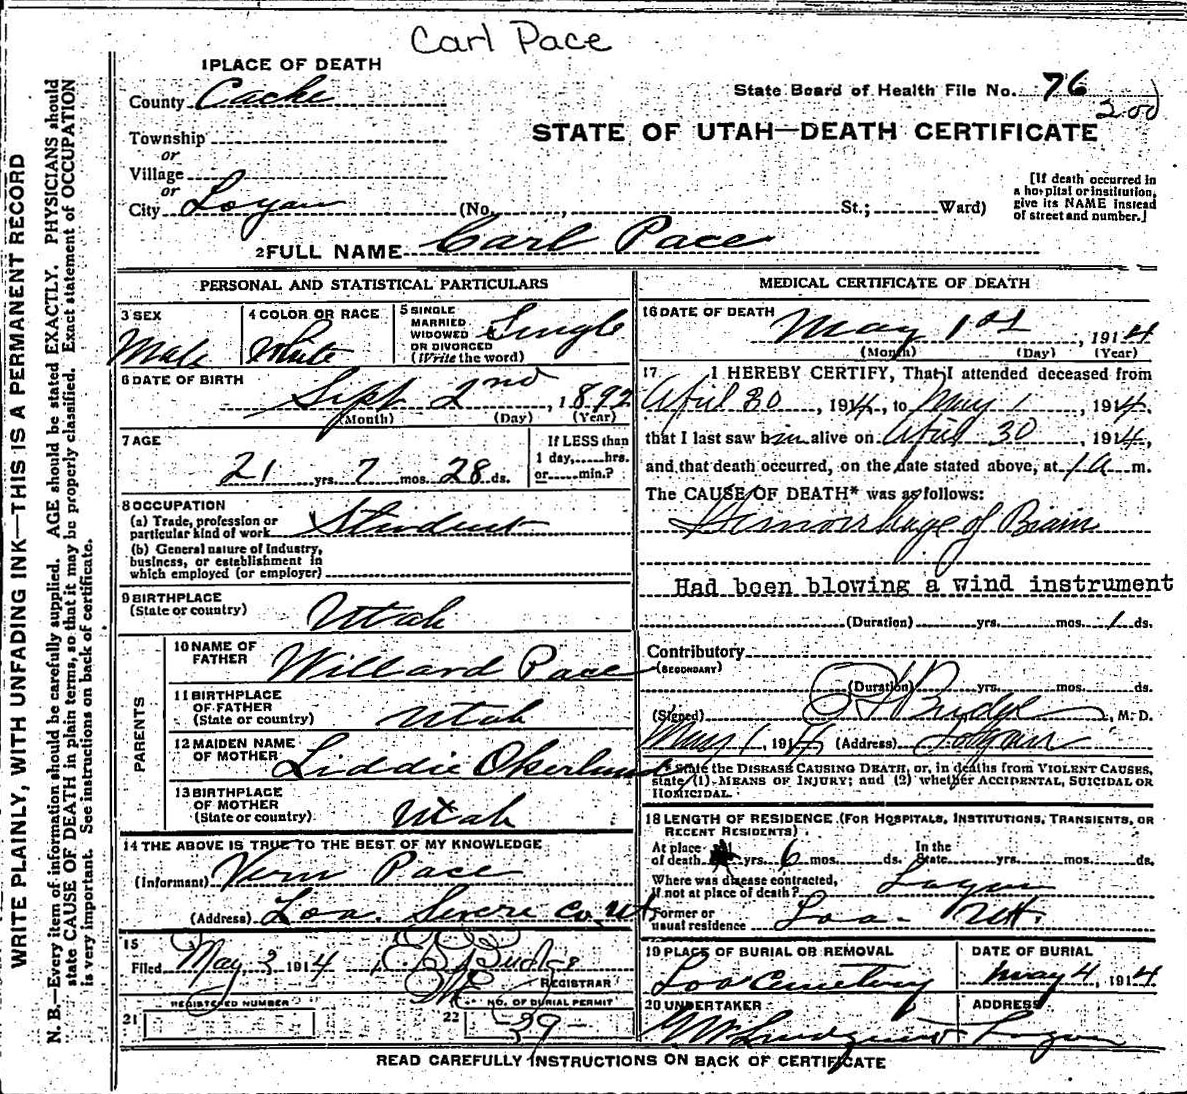 Carl Pace
1 PLACE OF DEATH
County Cache
State Board of Health File No. 76
200
Township
STATE OF UTAH—DEATH CERTIFICATE
or
Village
or
City Logan (No. , St.; Ward)
[If death occurred in a hospital or institution, give its NAME instead of street and number.]
2 FULL NAME Carl Pace
PERSONAL AND STATISTICAL PARTICULARS
3 SEX
Male
4 COLOR OR RACE
White
5 SINGLE
MARRIED
WIDOWED
OR DIVORCED
(Write the word)
Single
6 DATE OF BIRTH
Sept 2nd, 1892
(Month) (Day) (Year)
7 AGE
21 yrs. 7 mos. 28 ds.
If LESS than
1 day, hrs.
or min.?
8 OCCUPATION
(a) Trade, profession or
particular kind of work Student
(b) General nature of industry,
business, or establishment in
which employed (or employer)
9 BIRTHPLACE
(State or country)
Utah
PARENTS
10 NAME OF
FATHER
Willard Pace
11 BIRTHPLACE
OF FATHER
(State or country)
Utah
12 MAIDEN NAME
OF MOTHER
Liddie Okerlund
13 BIRTHPLACE
OF MOTHER
(State or country)
Utah
14 THE ABOVE IS TRUE TO THE BEST OF MY KNOWLEDGE
(Informant) Vern Pace
(Address) Loa. Co. Ut
15
Filed May 2 1914
REGISTRAR
REGISTERED NUMBER
21
NO. OF BURIAL PERMIT
22 -39-
MEDICAL CERTIFICATE OF DEATH
16 DATE OF DEATH
May 1st, 1914
(Month) (Day) (Year)
17. I HEREBY CERTIFY, That I attended deceased from
April 30, 1914, to May 1, 1914,
that I last saw him alive on April 30, 1914,
and that death occurred, on the date stated above, at 1 a m.
The CAUSE OF DEATH* was as follows:
Hemorrhage of Brain
Had been blowing a wind instrument
(Duration) yrs. mos. 1 ds.
Contributory
(SECONDARY)
(Duration) yrs. mos. ds.
(Signed) Budge, M. D.
May 1, 1914 (Address) Logan
* State the DISEASE CAUSING DEATH, or, in deaths from VIOLENT CAUSES,
state (1) MEANS OF INJURY; and (2) whether ACCIDENTAL, SUICIDAL OR
HOMICIDAL.
18 LENGTH OF RESIDENCE (FOR HOSPITALS, INSTITUTIONS, TRANSIENTS, OR
RECENT RESIDENTS).
At place
of death yrs. 6 mos. ds.
In the
State yrs. mos. ds.
Where was disease contracted,
if not at place of death? Logan
Former or
usual residence Loa. Ut.
19 PLACE OF BURIAL OR REMOVAL
Loa Cemetery
DATE OF BURIAL
May 4, 1914
20 UNDERTAKER
ADDRESS
Logan
READ CAREFULLY INSTRUCTIONS ON BACK OF CERTIFICATE
WRITE PLAINLY, WITH UNFADING INK—THIS IS A PERMANENT RECORD
N. B.—Every item of information should be carefully supplied. AGE should be stated EXACTLY. PHYSICIANS should
state CAUSE OF DEATH in plain terms, so that it may be properly classified. Exact statement of OCCUPATION
is very important. See instructions on back of certificate.